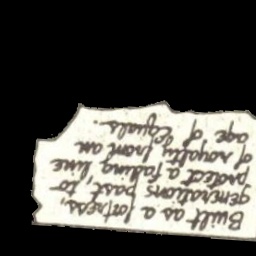 Built as a fortress,
generations past, to
protect a fading line
of royalty from an
age of Equals.